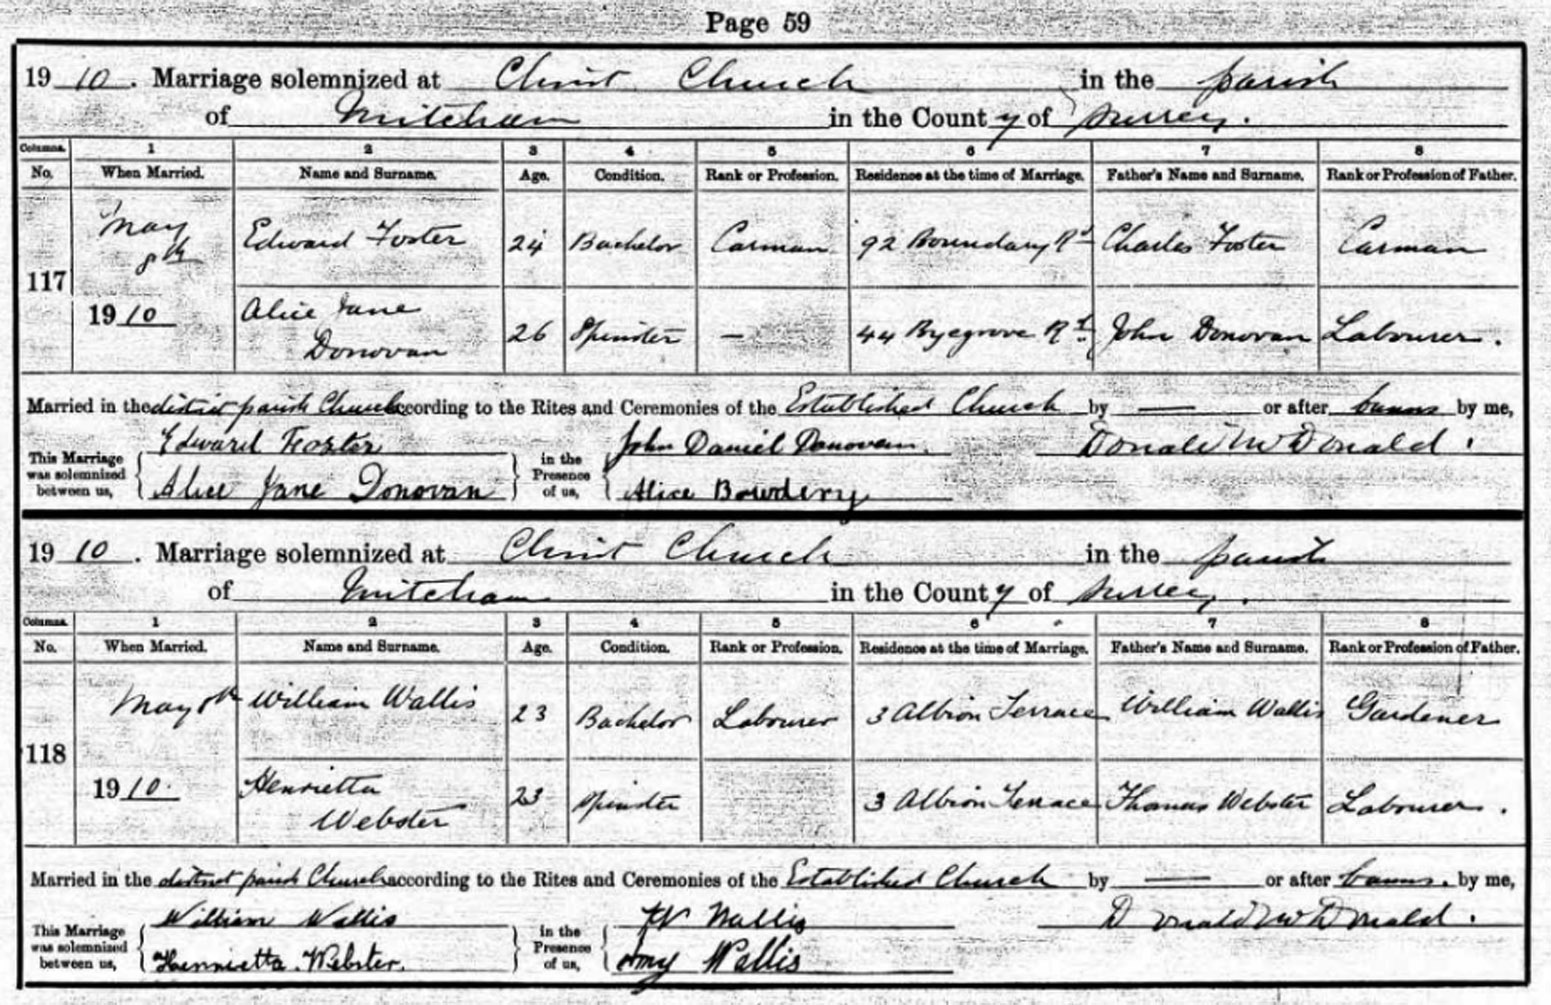 Page 59
1910. Marriage solemnized at Christ Church in the parish
of Mitcham in the County of Surrey.
Columns. 1 2 3 4 5 6 7 8
No. When Married. Name and Surname. Age. Condition. Rank or Profession. Residence at the time of Marriage. Father's Name and Surname. Rank or Profession of Father.
117 May 8th 1910 Edward Foster 24 Bachelor Carman 92 Boundary Rd Charles Foster Carman
Alice Jane Donovan 26 Spinster — 44 Byegrove Rd John Donovan Labourer.
Married in the district parish Church according to the Rites and Ceremonies of the Established Church by — or after banns by me,
This Marriage was solemnized between us, Edward Foster Alice Jane Donovan in the Presence of us, John Daniel Donovan. Alice Bowdery Donald McDonald.
1910. Marriage solemnized at Christ Church in the parish
of Mitcham in the County of Surrey.
Columns. 1 2 3 4 5 6 7 8
No. When Married. Name and Surname. Age. Condition. Rank or Profession. Residence at the time of Marriage. Father's Name and Surname. Rank or Profession of Father.
118 May 8th 1910. William Wallis 23 Bachelor Labourer 3 Albion Terrace William Wallis Gardener
Henrietta Webster 23 Spinster 3 Albion Terrace Thomas Webster Labourer.
Married in the district parish Church according to the Rites and Ceremonies of the Established Church by — or after banns. by me,
This Marriage was solemnized between us, William Wallis Henrietta. Webster. in the Presence of us, W Wallis Amy Wallis Donald McDonald.